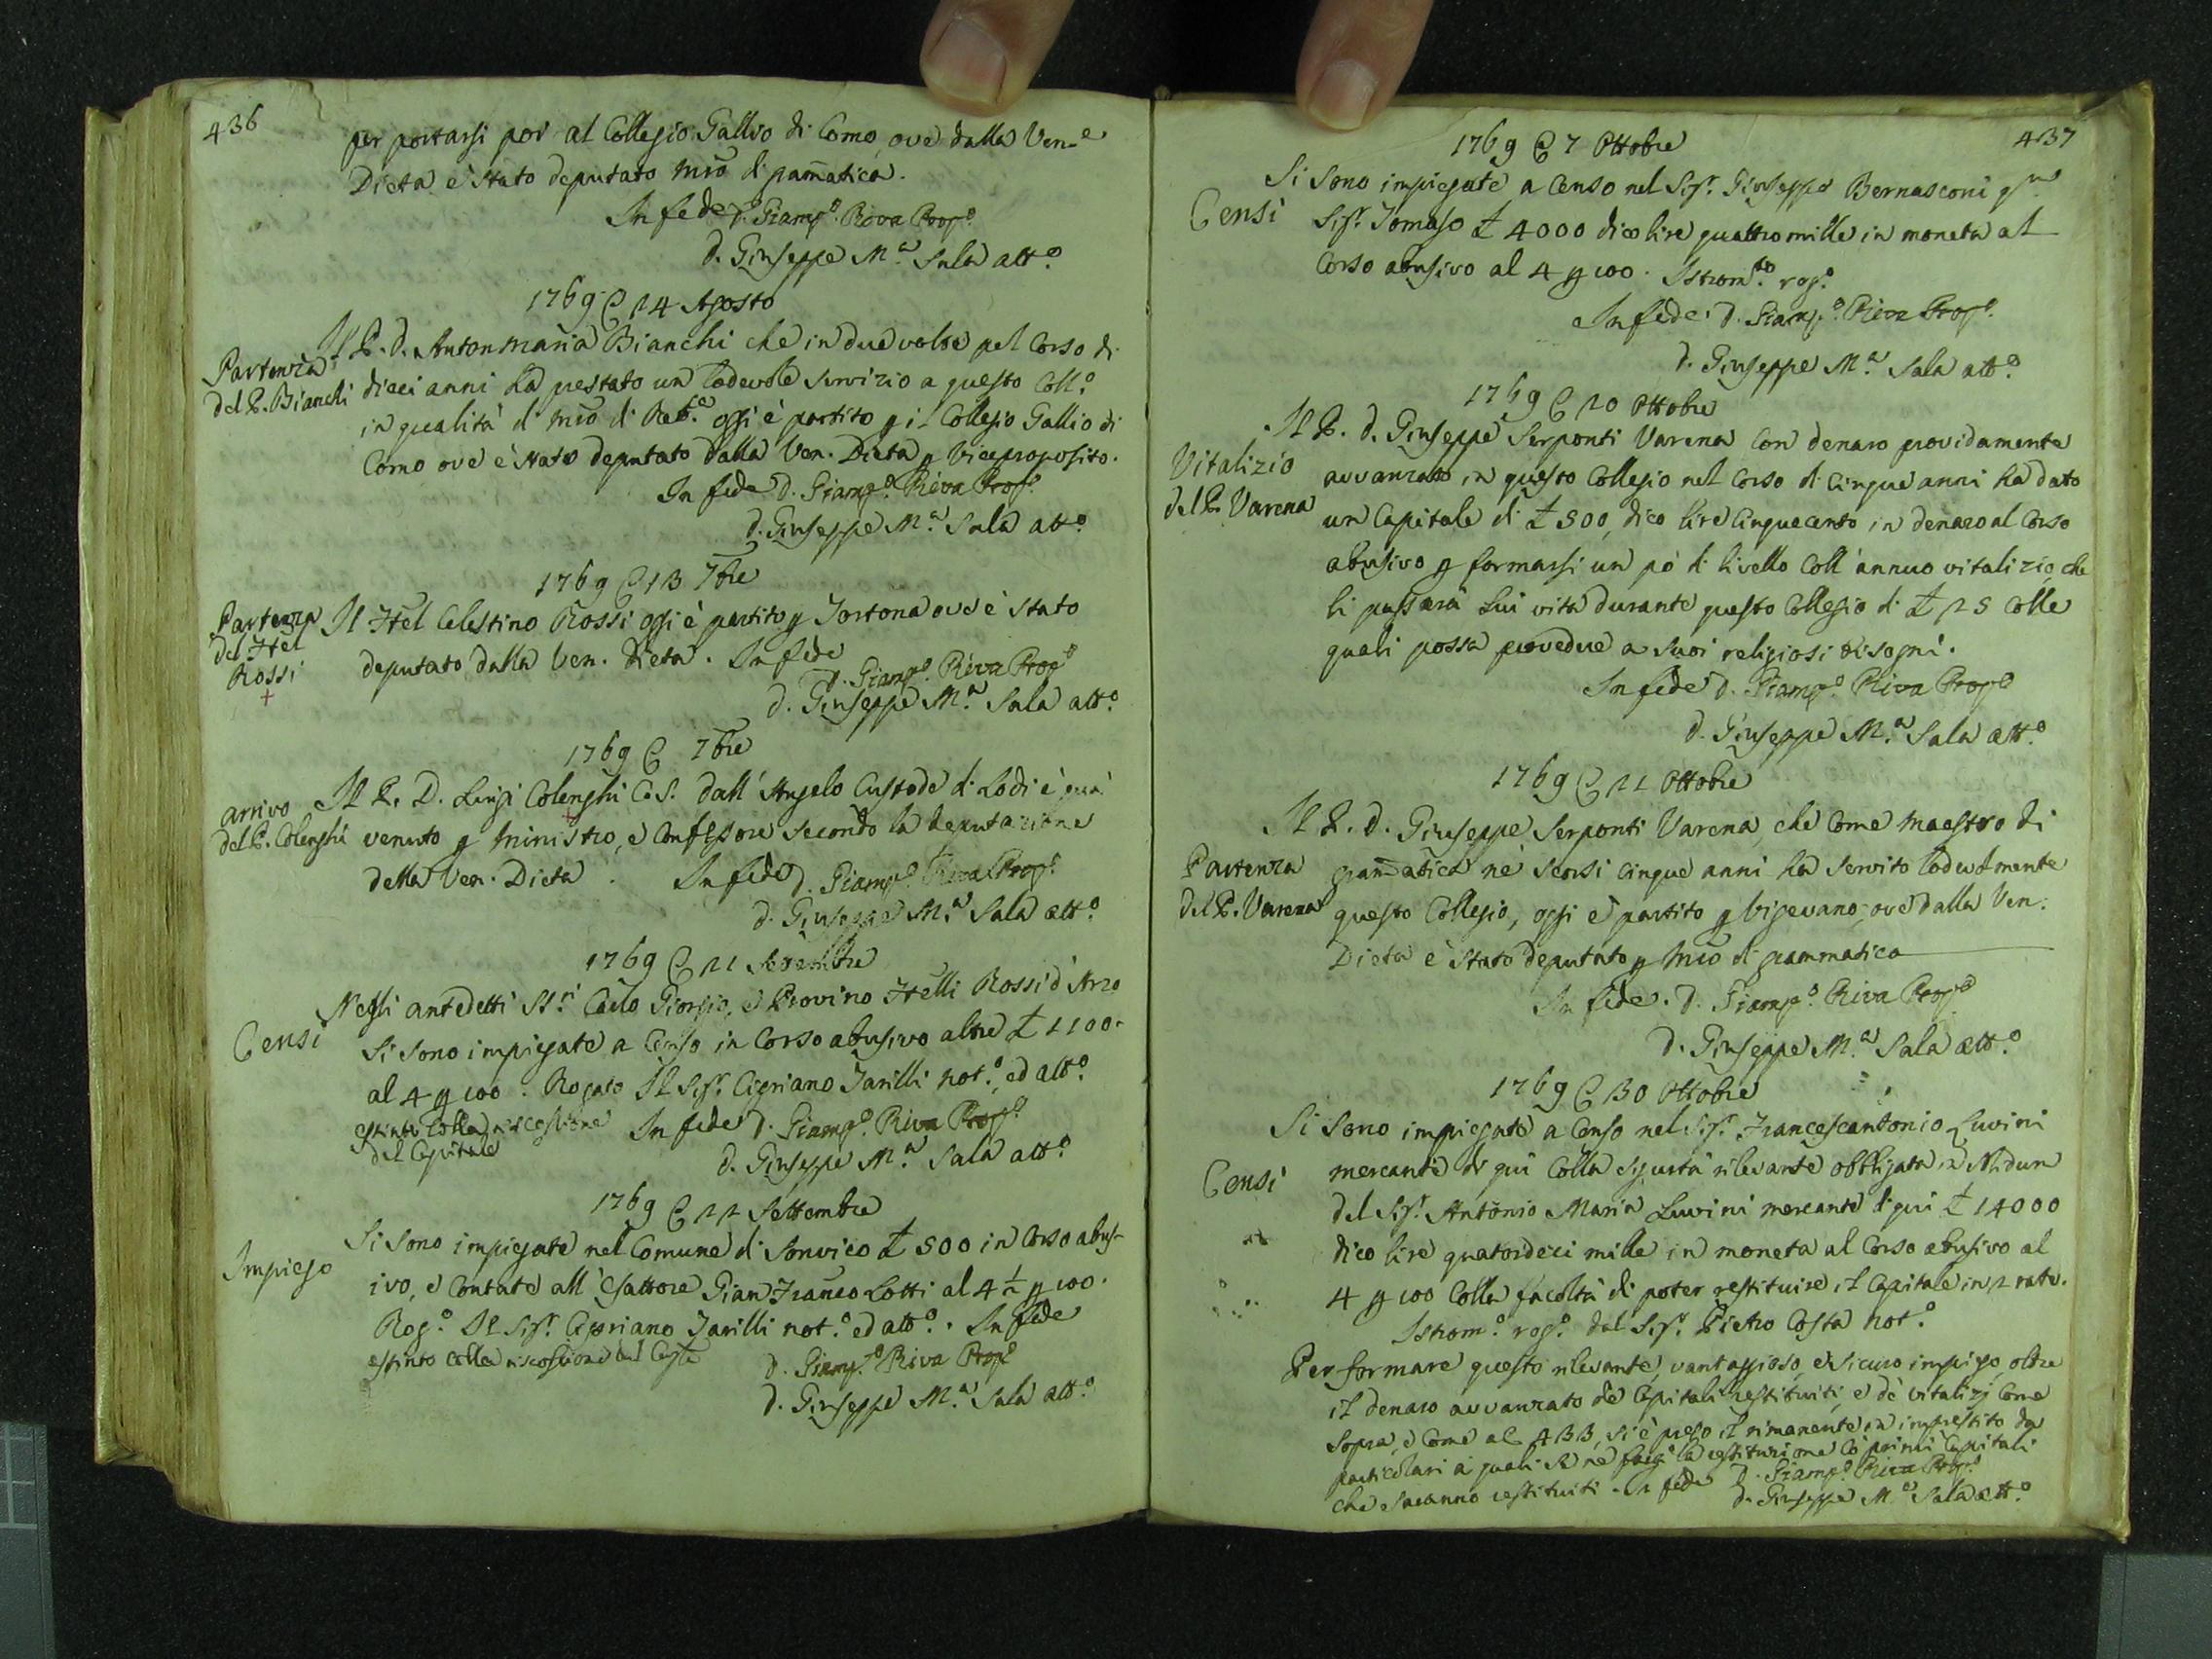 436
per portarsi poi al Collegio Gallio di Como, ove dalla Ven.e
Dieta è stato deputato mro di gramatica.
In fede d. Giamp.o Riva Prop.o
d. Giuseppe M.a Sala att.o
1769 @ 24 Agosto
Partenza
del P. Bianchi
Il P. d. Antonmaria Bianchi che in due volte pel corso di
dieci anni ha prestato un lodevole servizio a questo Coll.o
in qualità di mro di Ret.ca oggi è partito p il Collegio Gallio di
Como ove è stato deputato dalla Ven. Dieta p Viceproposito.
In fede d. Giamp.o Riva Prop.o
d. Giuseppe M.a Sala att.o
1769 @ 13 7bre
Partenza
del Ftel
Rossi
+
Il Ftel Celestino Rossi oggi è partito p Tortona ove è stato
deputato dalla Ven. Dieta. In fede
d. Giamp.o Riva Prop.o
d. Giuseppe M.a Sala att.o
1769 @ 7bre
arrivo
del P. Colenghi
Il P. D. Luigi Colenghi C.S. dall'Angelo Custode di Lodi è quà
venuto p ministro, e Confessore secondo la deputazione
della Ven. Dieta. In fede d. Giamp.o Riva Prop.o
d. Giuseppe M.a Sala att.o
1769 @ 21 Settembre
Censi
Negli antedetti SS.ri Carlo Giorgio, e Provino Ftelli Rossi d'Arzo
si sono impiegate a Censo in Corso abusivo altre £ 1100.
al 4 p 100. Rogato Il Sig.r Cipriano Tarilli not.o, ed att.o
estinto colla riscossione
del Capitale
In fede d. Giamp.o Riva Prop.o
d. Giuseppe M.a Sala att.o
1769 @ 22 Settembre
Impiego
Si sono impiegate nel Comune di Sonvico £ 500 in Corso abus-
ivo, e contate all'Esattore Gian Franco Lotti al 4 ½ p 100.
Rog.o Il Sig.r Cipriano Tarilli not.o ed att.o. In fede
estinto colla riscossione del
d. Giamp.o Riva Prop.o
d. Giuseppe M.a Sala att.o
437
1769 @ 7 Ottobre
Censi
Si sono impiegate a Censo nel Sig.r Giuseppe Bernasconi q.m
Sig.r Tomaso £ 4000 dico lire quattromille in moneta al
Corso abusivo al 4 p 100. Istrom.to rog.o
In fede d. Giamp.o Riva Prop.o
d. Giuseppe M.a Sala att.o
1769 @ 20 Ottobre
Vitalizio
del P. Varena
Il P. d. Giuseppe Serponti Varena con denaro providamente
avvanzato in questo Collegio nel corso di cinque anni ha dato
un Capitale di £ 500, dico lire cinquecento in denaro al Corso
abusivo p formarsi un pò di livello coll'annuo vitalizio, che
li passerà lui vita durante questo Collegio di £ 25 colle
quali possa provedere a suoi religiosi bisogni.
In fede d. Giamp.o Riva Prop.o
d. Giuseppe M.a Sala att.o
1769 @ 21 Ottobre
Partenza
del P. Varena
Il P. d. Giuseppe Serponti Varena, che come maestro di
gramatica nè scorsi cinque anni ha servito lodevolmente
questo Collegio, oggi è partito p Vigevano, ove dalla Ven.
Dieta è stato deputato p mro di grammatica
In fede. d. Giamp.o Riva Prop.o
d. Giuseppe M.a Sala att.o
1769 @ 30 Ottobre
Censi
Si sono impiegate a Censo nel Sig.r Francescantonio Luvini
mercante di quì colla sigurtà rilevante obbligata in
del Sig.r Antonio Maria Luvini mercante di quì £ 14000
dico lire quatordeci mille in moneta al corso abusivo al
4 p 100 colla facoltà di poter restituire il Capitale in 2 rate.
Istrom.o rog.o dal Sig.r Pietro Costa not.o
Per formare questo rilevante, vantaggioso, e sicuro impiego, oltre
il denaro avvanzato de Capitali restituiti, e de vitalizj come
sopra, e come al 433, si è preso il rimanente in imprestito da
particolari a quali se ne farà la restituzione co' primi Capitali
che saranno restituiti. In fede d. Giamp.o Riva Prop.o
d. Giuseppe M.a Sala att.o